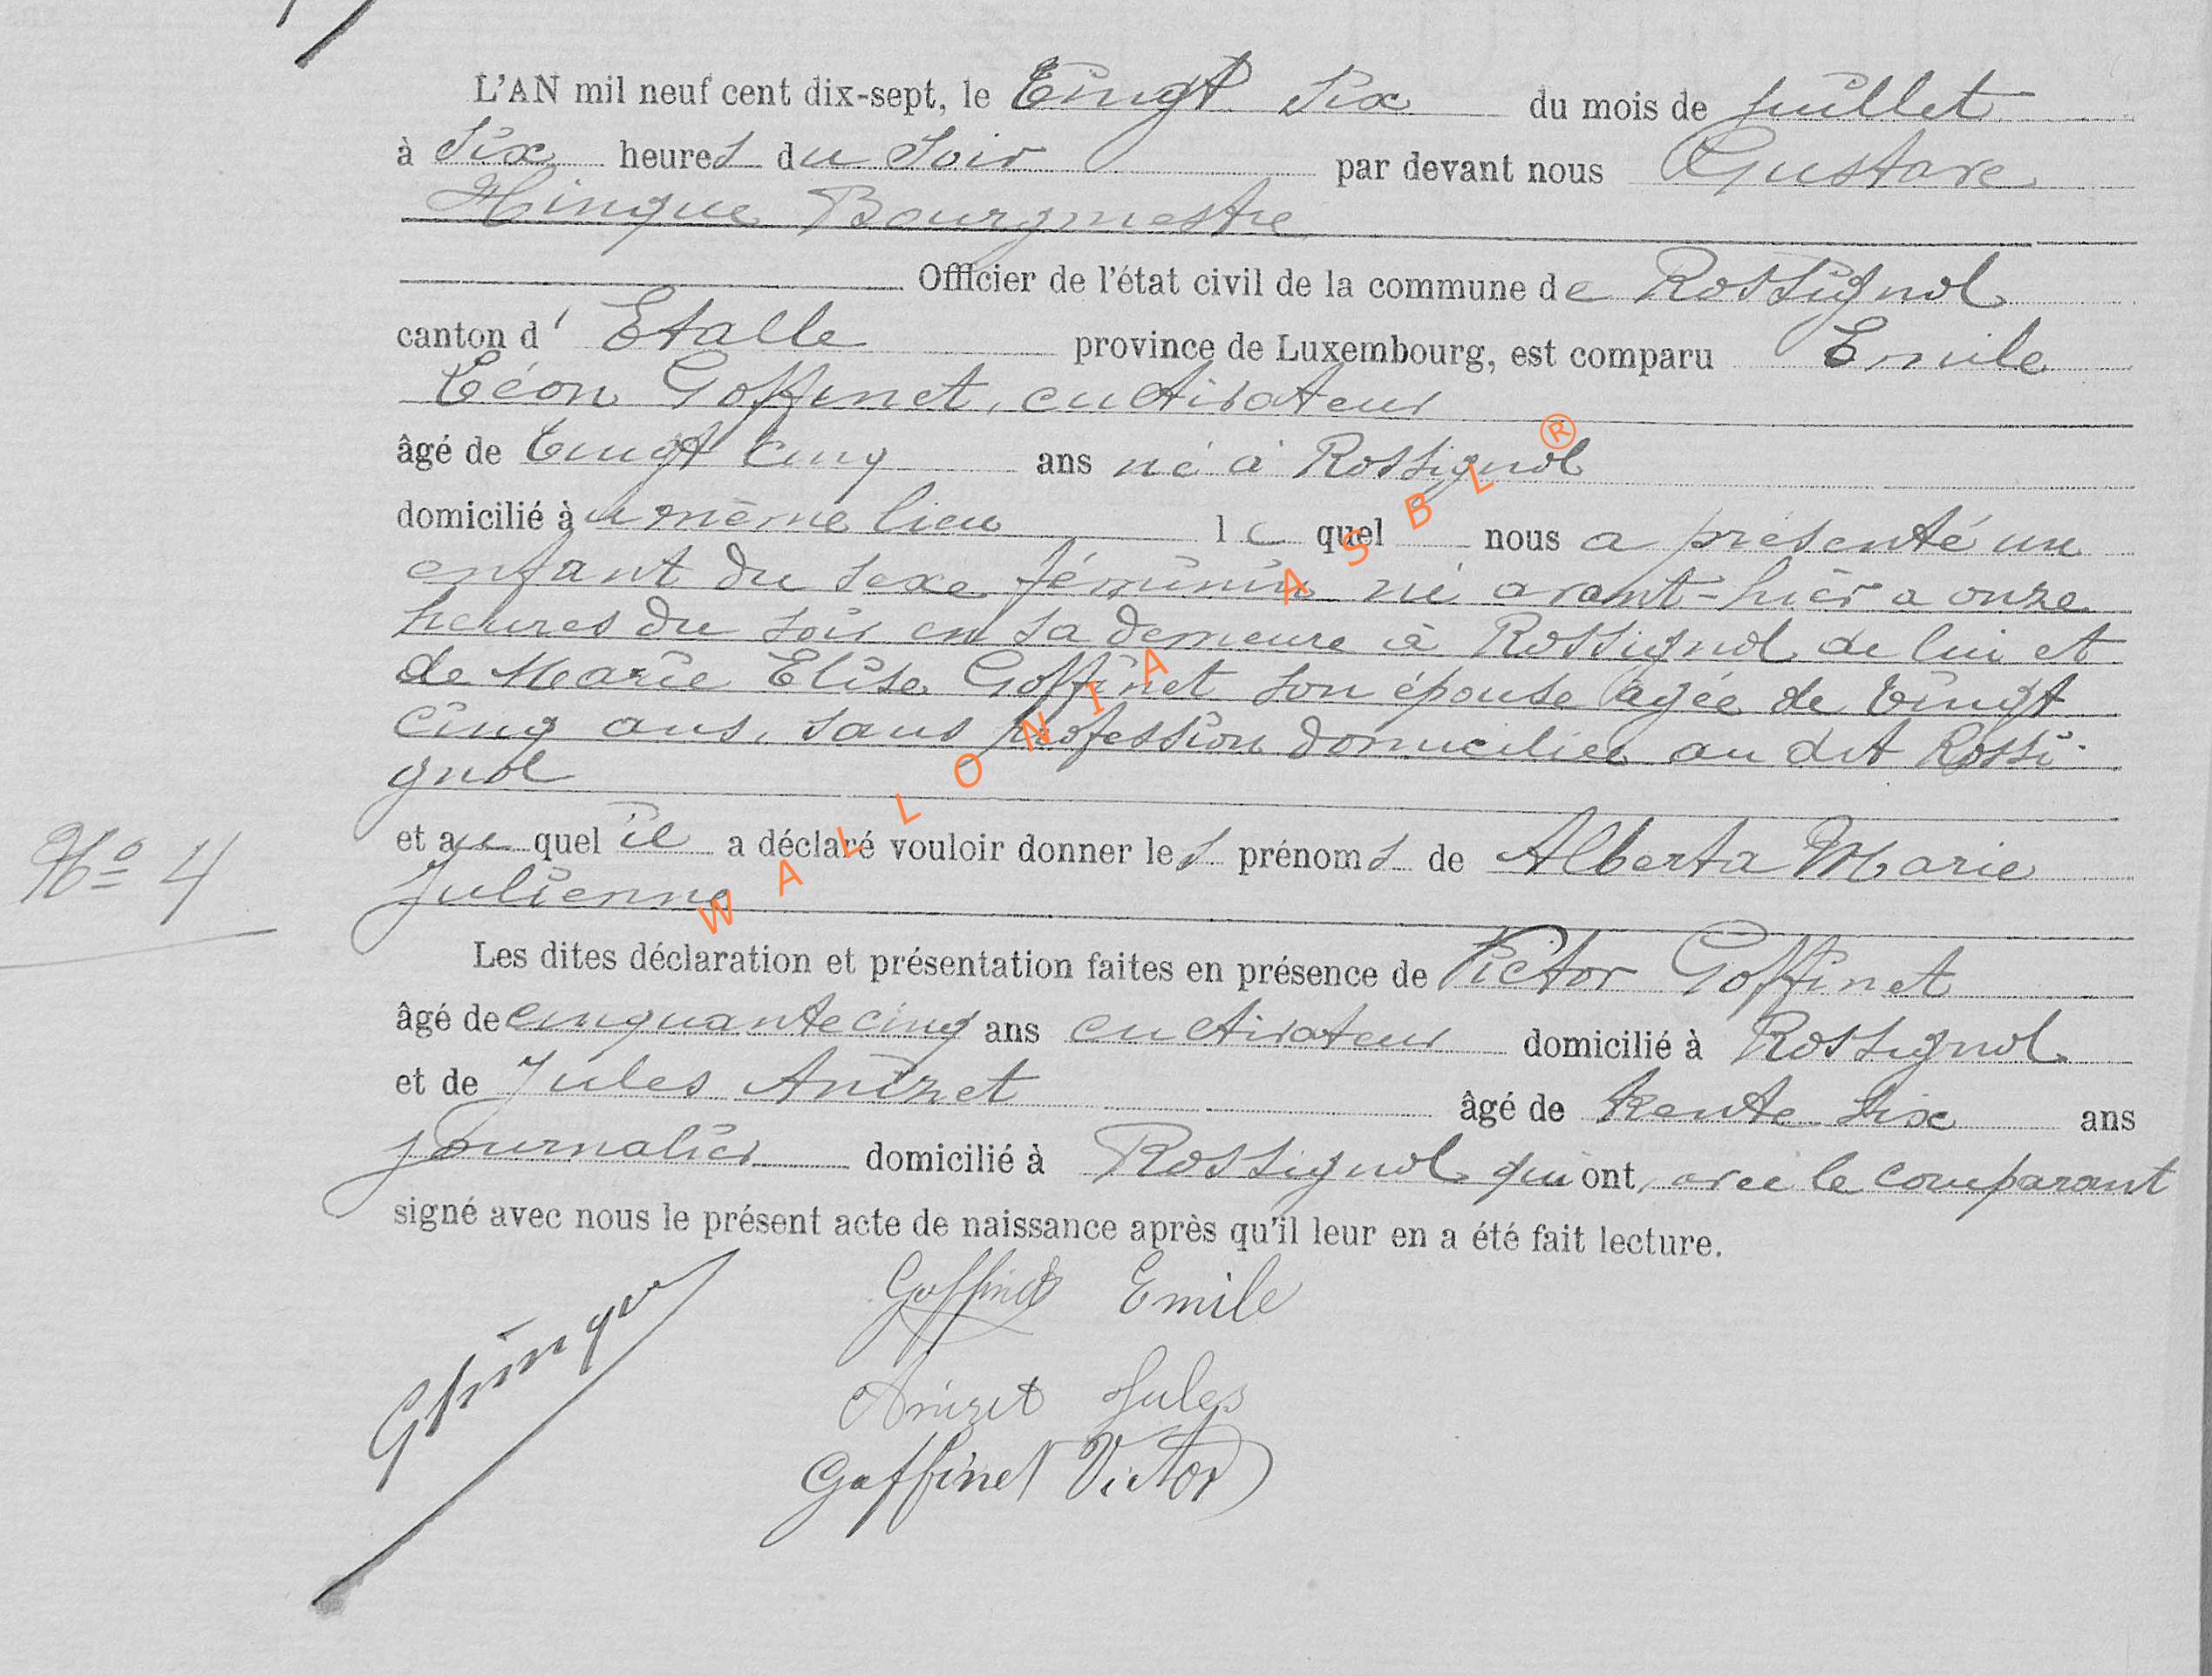 L'AN mil neuf cent dix-sept, le Vingt Six du mois de juillet
à Six heures du Soir par devant nous Gustave
Hinque Bourgmestre
Officier de l'état civil de la commune de Rossignol
canton d' Etalle province de Luxembourg, est comparu Emile
Léon Goffinet, cultivateur
âgé de Vingt Cinq ans né à Rossignol
domicilié au même lieu le quel nous a présenté un
enfant du sexe féminin né avant-hier a onze
heures du soir en sa demeure à Rossignol de lui et
de Marie Elise Goffinet son épouse agée de Vingt
cinq ans, sans profession domiciliée au dit Rossi-
gnol
N° 4
et au quel il a déclaré vouloir donner les prénoms de Alberta Marie
Julienne
Les dites déclaration et présentation faites en présence de Victor Goffinet
âgé de cinquante cinq ans cultivateur domicilié à Rossignol
et de Jules Anizet âgé de trente six ans
journalier domicilié à Rossignol qui ont, avec le comparant
signé avec nous le présent acte de naissance après qu'il leur en a été fait lecture.
GHinque
Goffinet Emile
Anizet Jules
Goffinet Victor
WALLONIA ASBL ®